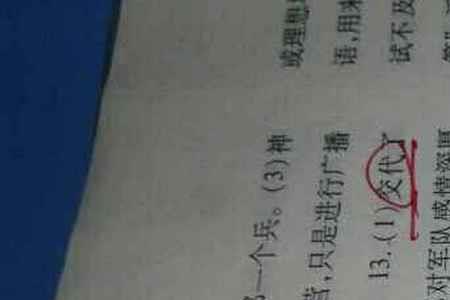 一个兵。(3)神
,只是进行广播
13.(1)交代了
对军队感情深厚
或理想
语,用来
试不及